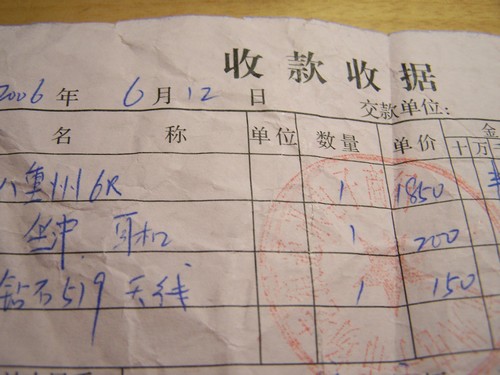 收款收据
2006 年 6 月 12 日
交款单位:
名 称 单位 数量 单价 金
十 万
八重州 6R 1 1850
耳机 1 200
钻石519 天线 1 150